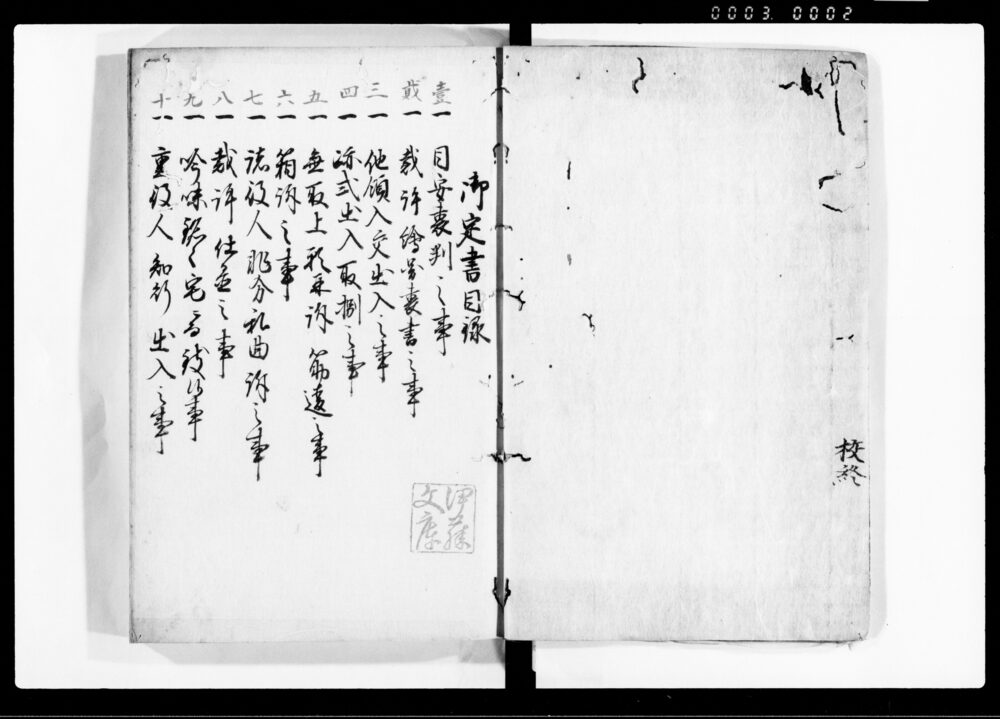 0003 0002
校終
御定書目録
壹一 目安裏判之事
貮一 裁許繪圖裏書之事
三一 他領入交出入之事
四一 跡式出入取捌之事
五一 無取上願再訴 筋違之事
六一 箱訴之事
七一 諸役人非分私曲訴之事
八一 裁許仕直之事
九一 吟味 宅 事
十一 重役人 知行 出入之事
伊藤
文庫